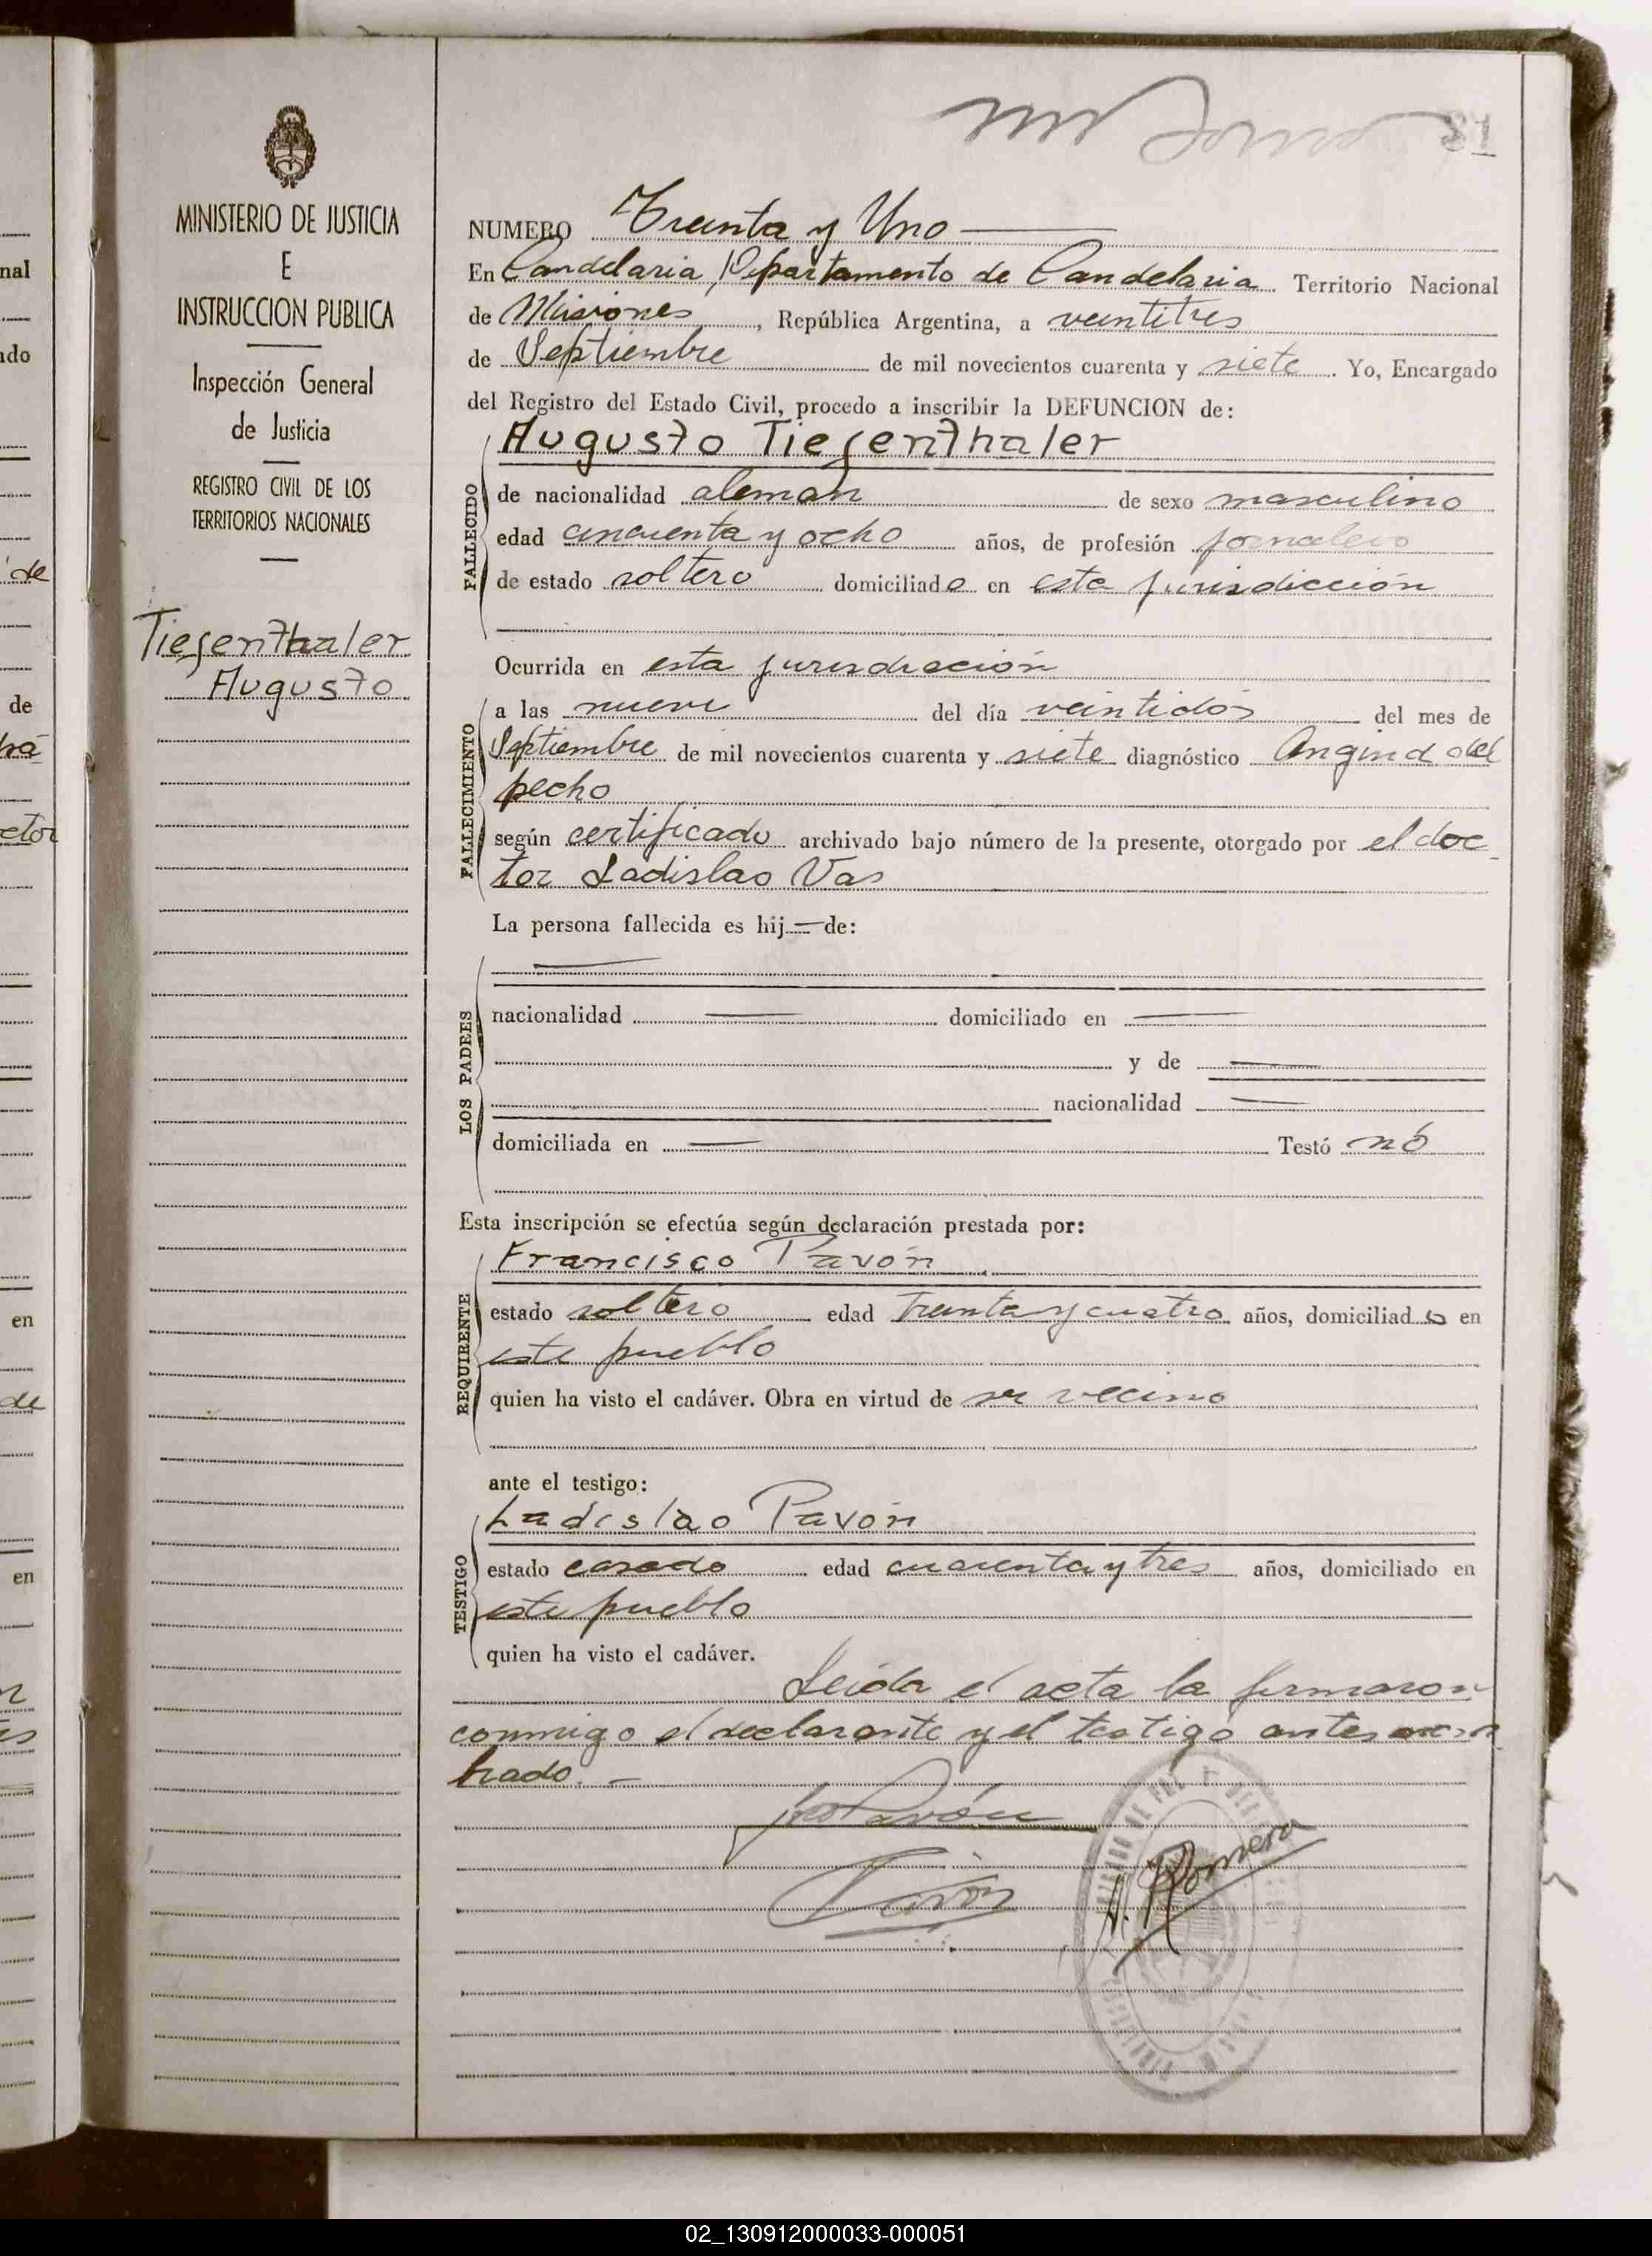 MINISTERIO DE JUSTICIA
E
INSTRUCCION PUBLICA
Inspección General
de Justicia
REGISTRO CIVIL DE LOS
TERRITORIOS NACIONALES
Tiefenthaler
Augusto
31
NUMERO Treinta y Uno
En Candelaria, Departamento de Candelaria Territorio Nacional
de Misiones, República Argentina, a veintitres
de Septiembre de mil novecientos cuarenta y siete. Yo, Encargado
del Registro del Estado Civil, procedo a inscribir la DEFUNCION de:
Augusto Tiefenthaler
FALLECIDO
de nacionalidad alemán de sexo masculino
edad cincuenta y ocho años, de profesión jornalero
de estado soltero domiciliado en esta jurisdicción
Ocurrida en esta jurisdicción
FALLECIMIENTO
a las nueve del día veintidos del mes de
Septiembre de mil novecientos cuarenta y siete diagnóstico Angina del
pecho
según certificado archivado bajo número de la presente, otorgado por el doc
tor Ladislao Vas
La persona fallecida es hij— de:
LOS PADES
nacionalidad — domiciliado en —
y de —
nacionalidad —
domiciliada en — Testó nó
Esta inscripción se efectúa según declaración prestada por:
Francisco Pavón
REQUIRENTE
estado soltero edad treinta y cuatro años, domiciliado en
este pueblo
quien ha visto el cadáver. Obra en virtud de ser vecino
ante el testigo:
Ladislao Pavón
TESTIGO
estado casado edad cuarenta y tres años, domiciliado en
este pueblo
quien ha visto el cadáver.
Leida el acta la firmaron
conmigo el declarante y el testigo antes nom
brado. —
Fco Pavón
Pavón
A. Romera
nal
ido
de
de
etor
en
de
en
02_130912000033-000051